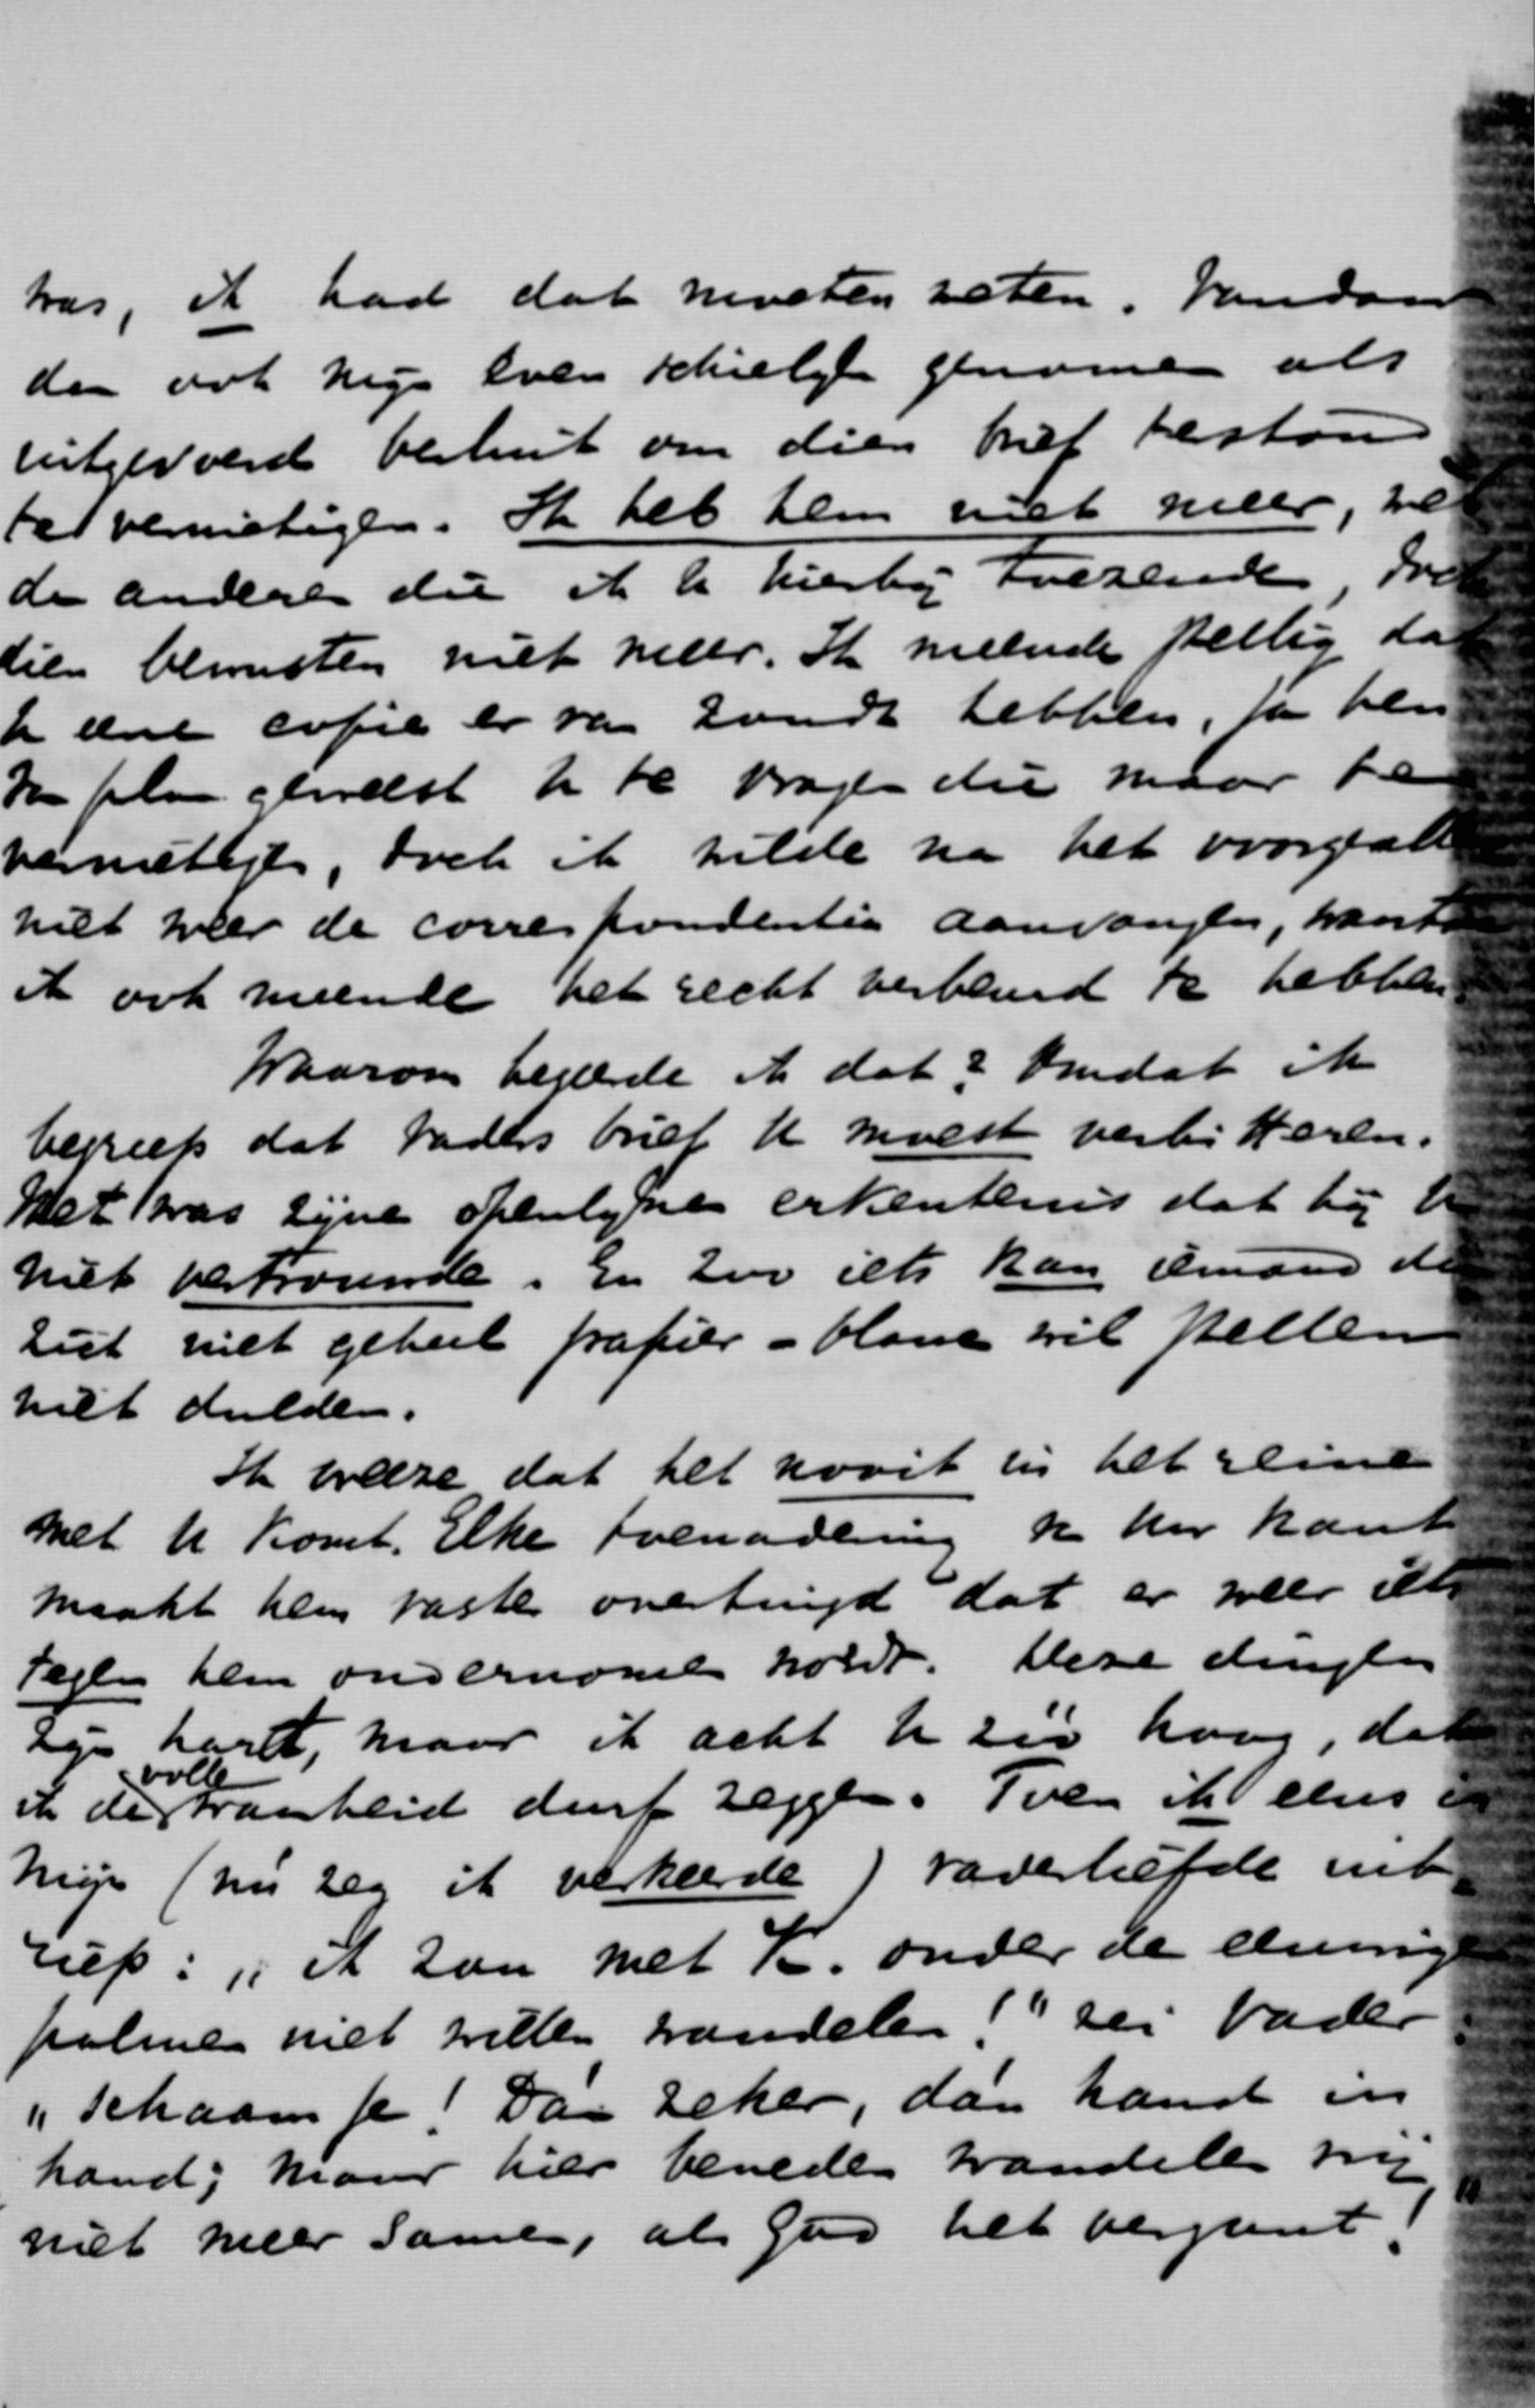 was, ik had dat moeten weten. Vandaar
den ook mijn even schielijk genomen als
uitgevoerd besluit om dien brief terstond
te vernietigen. Ik heb hem niet meer, wel
de andere die ik U hierbij toezende, doch
dien bewusten niet meer. Ik meende stellig dat
U eene copie er van zoudt hebben, ja ben
van plan geweest U te vragen die maar te
vernietigen, doch ik wilde na het voorgevallene
niet weer de correspondentie aanvangen, want
ik ook meende het recht verbeurd te hebben.
Waarom begeerde ik dat? Omdat ik
begreep dat Vaders brief U moest verbitteren.
Het was zijne openlijke erkentenis dat hij U
niet vertrouwde. En zoo iets kan iemand die
zich niet geheel papier-blanc wil stellen
niet dulden.
Ik vreeze dat het nooit in het reine
met U komt. Elke toenadering van Uw kant
maakt hem vaster overtuigd dat er weer iets
tegen hem ondernomen wordt. Deze dingen
zijn hard, maar ik acht U zóó hoog, dat
ik de volle waarheid durf zeggen. Toen ik eens in
mijn (nu zeg ik verkeerde) vaderliefde uit-
riep: „ik zou met K. onder de eeuwige
palmen niet willen wandelen!" zei Vader:
„Schaam je! Dáár zeker, dán hand in
hand; maar hier beneden wandelen wij
niet meer samen, als God het vergunt!"